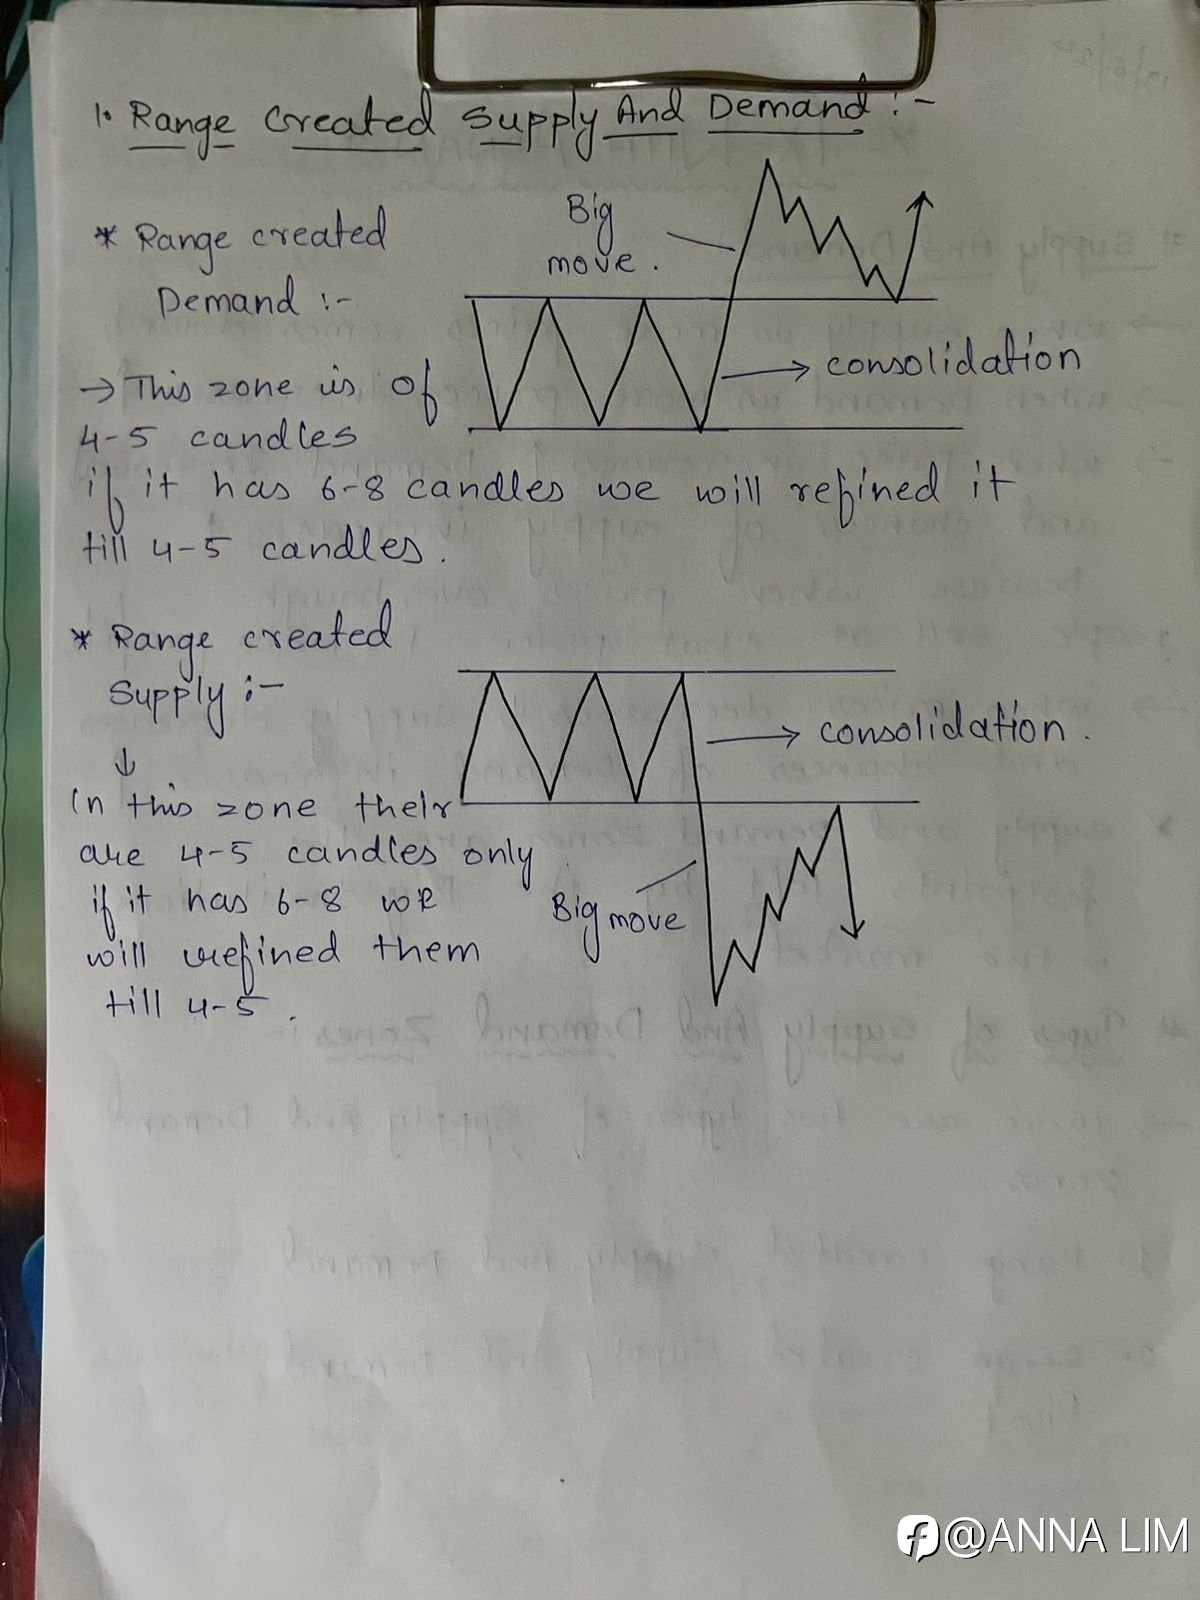 1. Range Created Supply And Demand :-
* Range created
Demand :-
Big
move.
→ consolidation
→ This zone is of
4-5 candles
if it has 6-8 candles we will refined it
till 4-5 candles.
* Range created
Supply :-
→ consolidation.
↓
In this zone their
are 4-5 candles only
if it has 6-8 we
will refined them
till 4-5.
Big move
@ANNA LIM